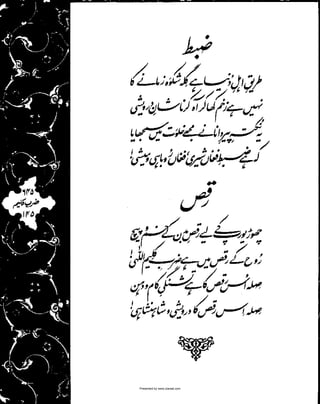 ضبط
طریقِ اہلِ دنیا ہے گلہ شکوہ زمانے کا
نہیں ہے زخم کھا کر آہ کرنا شانِ درویشی
یہ نکتہ پیرِ دانا نے مجھے خلوت میں سمجھایا
کہ ہے ضبطِ فغاں شیری، فغاں روباہی و میشی!
رقص
چھوڑ یورپ کے لیے رقصِ بدن کے خم و پیچ
روح کے رقص میں ہے ضربِ کلیم اللّٰہی!
صلہ اُس رقص کا ہے تشنگیِ کام و دہن
صلہ اِس رقص کا درویشی و شاہنشاہی!
۶۳۵
ضربِ کلیم
۱۳۵
Presented by www.ziaraat.com